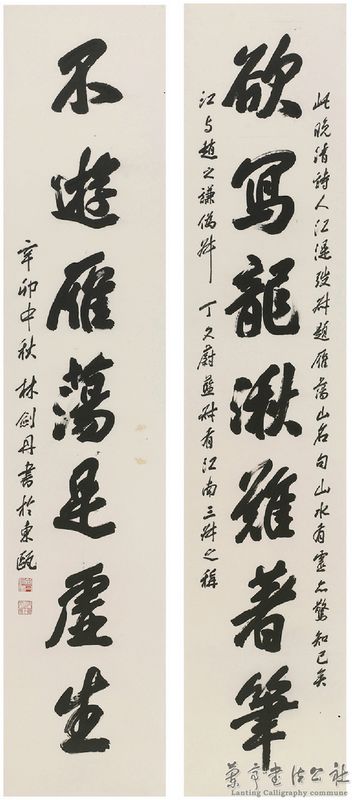 此晚清詩人江湜弢叔題雁蕩山名句山水有靈亦驚知己矣
欲寫龍湫難著筆
江与趙之謙撝叔 丁文蔚藍叔有江南三叔之稱
不遊雁蕩是虛生
辛卯中秋 林剑丹書於東甌
蘭亭書法公社
Lanting Calligraphy commune